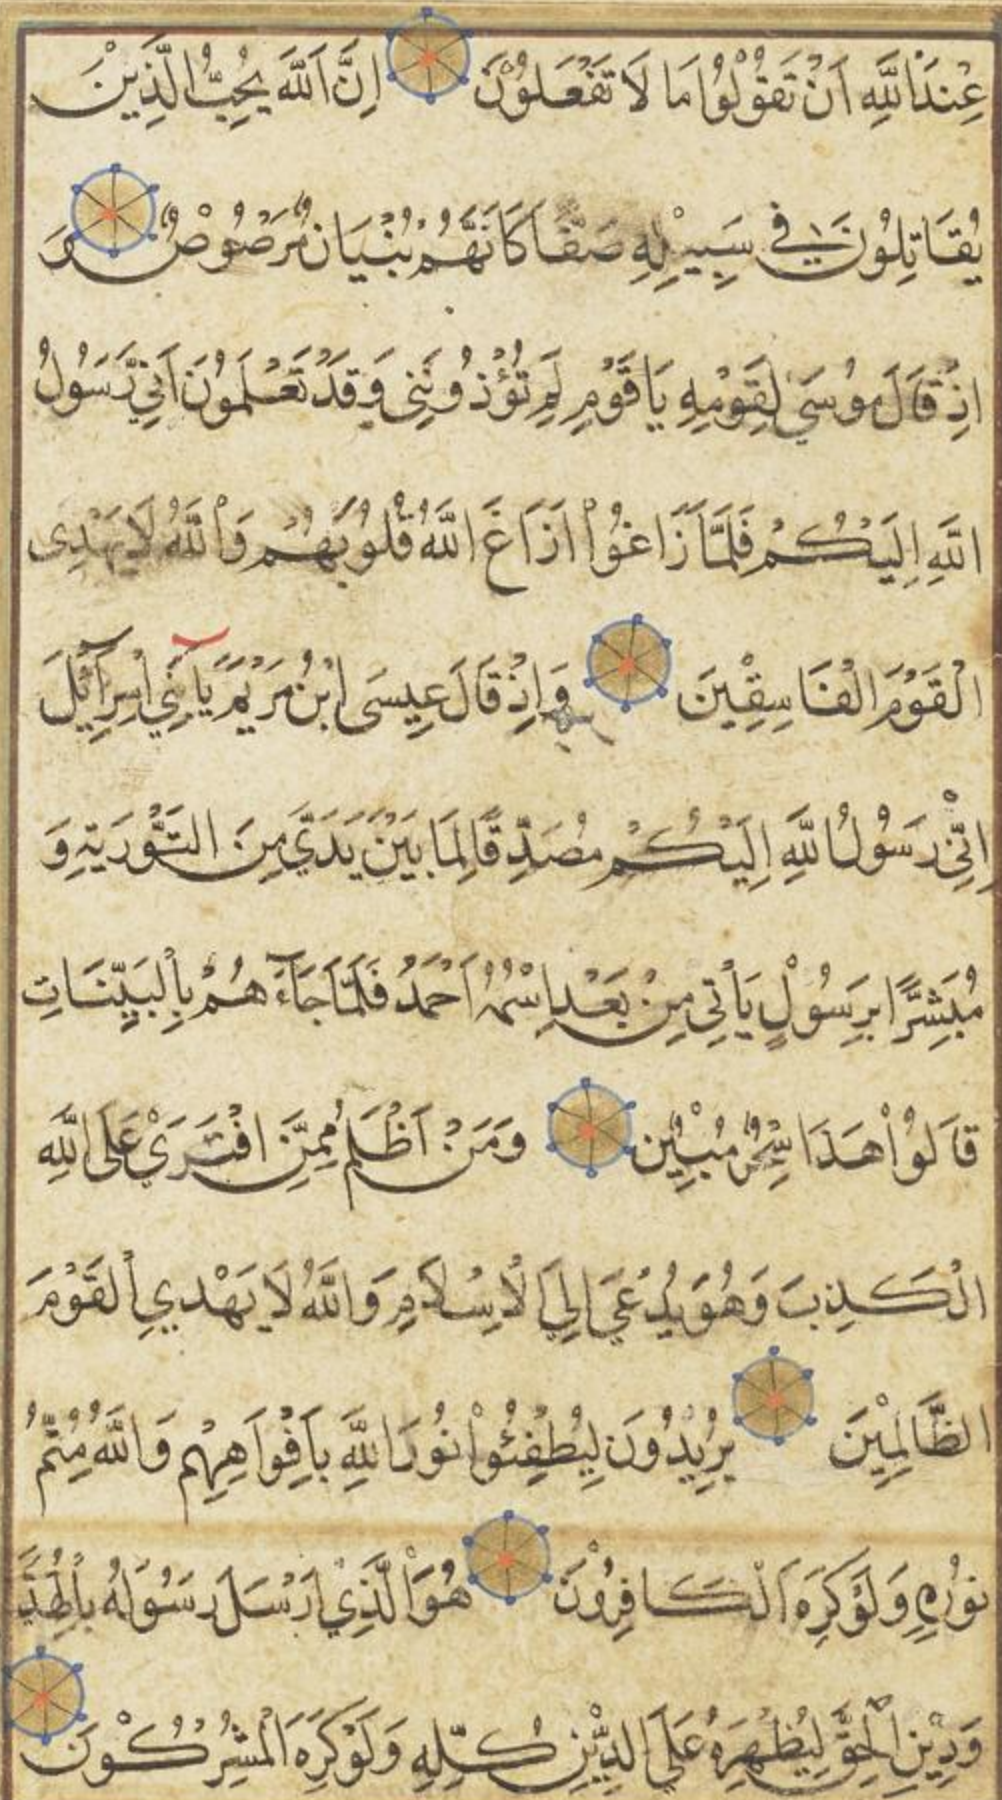 عِنْدَ اللَّهِ اَنْ تَقُوْلُوْا مَا لَا تَفْعَلُوْنَ اِنَّ اللَّهَ يُحِبُّ الَّذِيْنَ
يُقَاتِلُوْنَ فِي سَبِيْلِهِ صَفًّا كَاَنَّهُمْ بُنْيَانٌ مَرْصُوْصٌ وَ
اِذْ قَالَ مُوْسَى لِقَوْمِهِ يَا قَوْمِ لِمَ تُؤْذُوْنَنِى وَقَدْ تَعْلَمُوْنَ اَنِّي رَسُوْلُ
اللَّهِ اِلَيْكُمْ فَلَمَّا زَاغُوْا اَزَاغَ اللَّهُ قُلُوْبَهُمْ وَاللَّهُ لَا يَهْدِى
الْقَوْمَ الْفَاسِقِيْنَ وَاِذْ قَالَ عِيسَى ابْنُ مَرْيَمَ يَا بَنِي اِسْرَآئِلَ
اِنِّي رَسُوْلُ اللَّهِ اِلَيْكُمْ مُصَدِّقًا لِمَا بَيْنَ يَدَيَّ مِنَ التَّوْرَيةِ وَ
مُبَشِّرًا بِرَسُوْلٍ يَأْتِى مِنْ بَعْدِ اسْمُهُ اَحْمَدُ فَلَمَّا جَآءَ هُمْ بِالْبَيِّنَاتِ
قَالُوْا هَذَا سِحْرٌ مُبِيْنٌ وَمَنْ اَظْلَمُ مِمَّنِ افْتَرَىْ عَلَى اللَّهِ
الْكَذِبَ وَهُوَ يُدْعَي اِلَي الْاِسْلَامِ وَاللَّهُ لَا يَهْدِي الْقَوْمَ
الظَّالِمِيْنَ يُرِيْدُوْنَ لِيُطْفِئُوْا نُوْرَ اللَّهِ بِاَفْوَاهِهِمْ وَاللَّهُ مُتِمُّ
نُوْرِهِ وَلَوْ كَرِهَ الْكَافِرُوْنَ هُوَ الَّذِيْ اَرْسَلَ رَسُوْلَهُ بِالْهُدَىَ
وَدِيْنِ الْحَقِّ لِيُظْهِرَهُ عَلَى الدِّيْنِ كُلِّهِ وَلَوْ كَرِهَ الْمُشْرِكُوْنَ